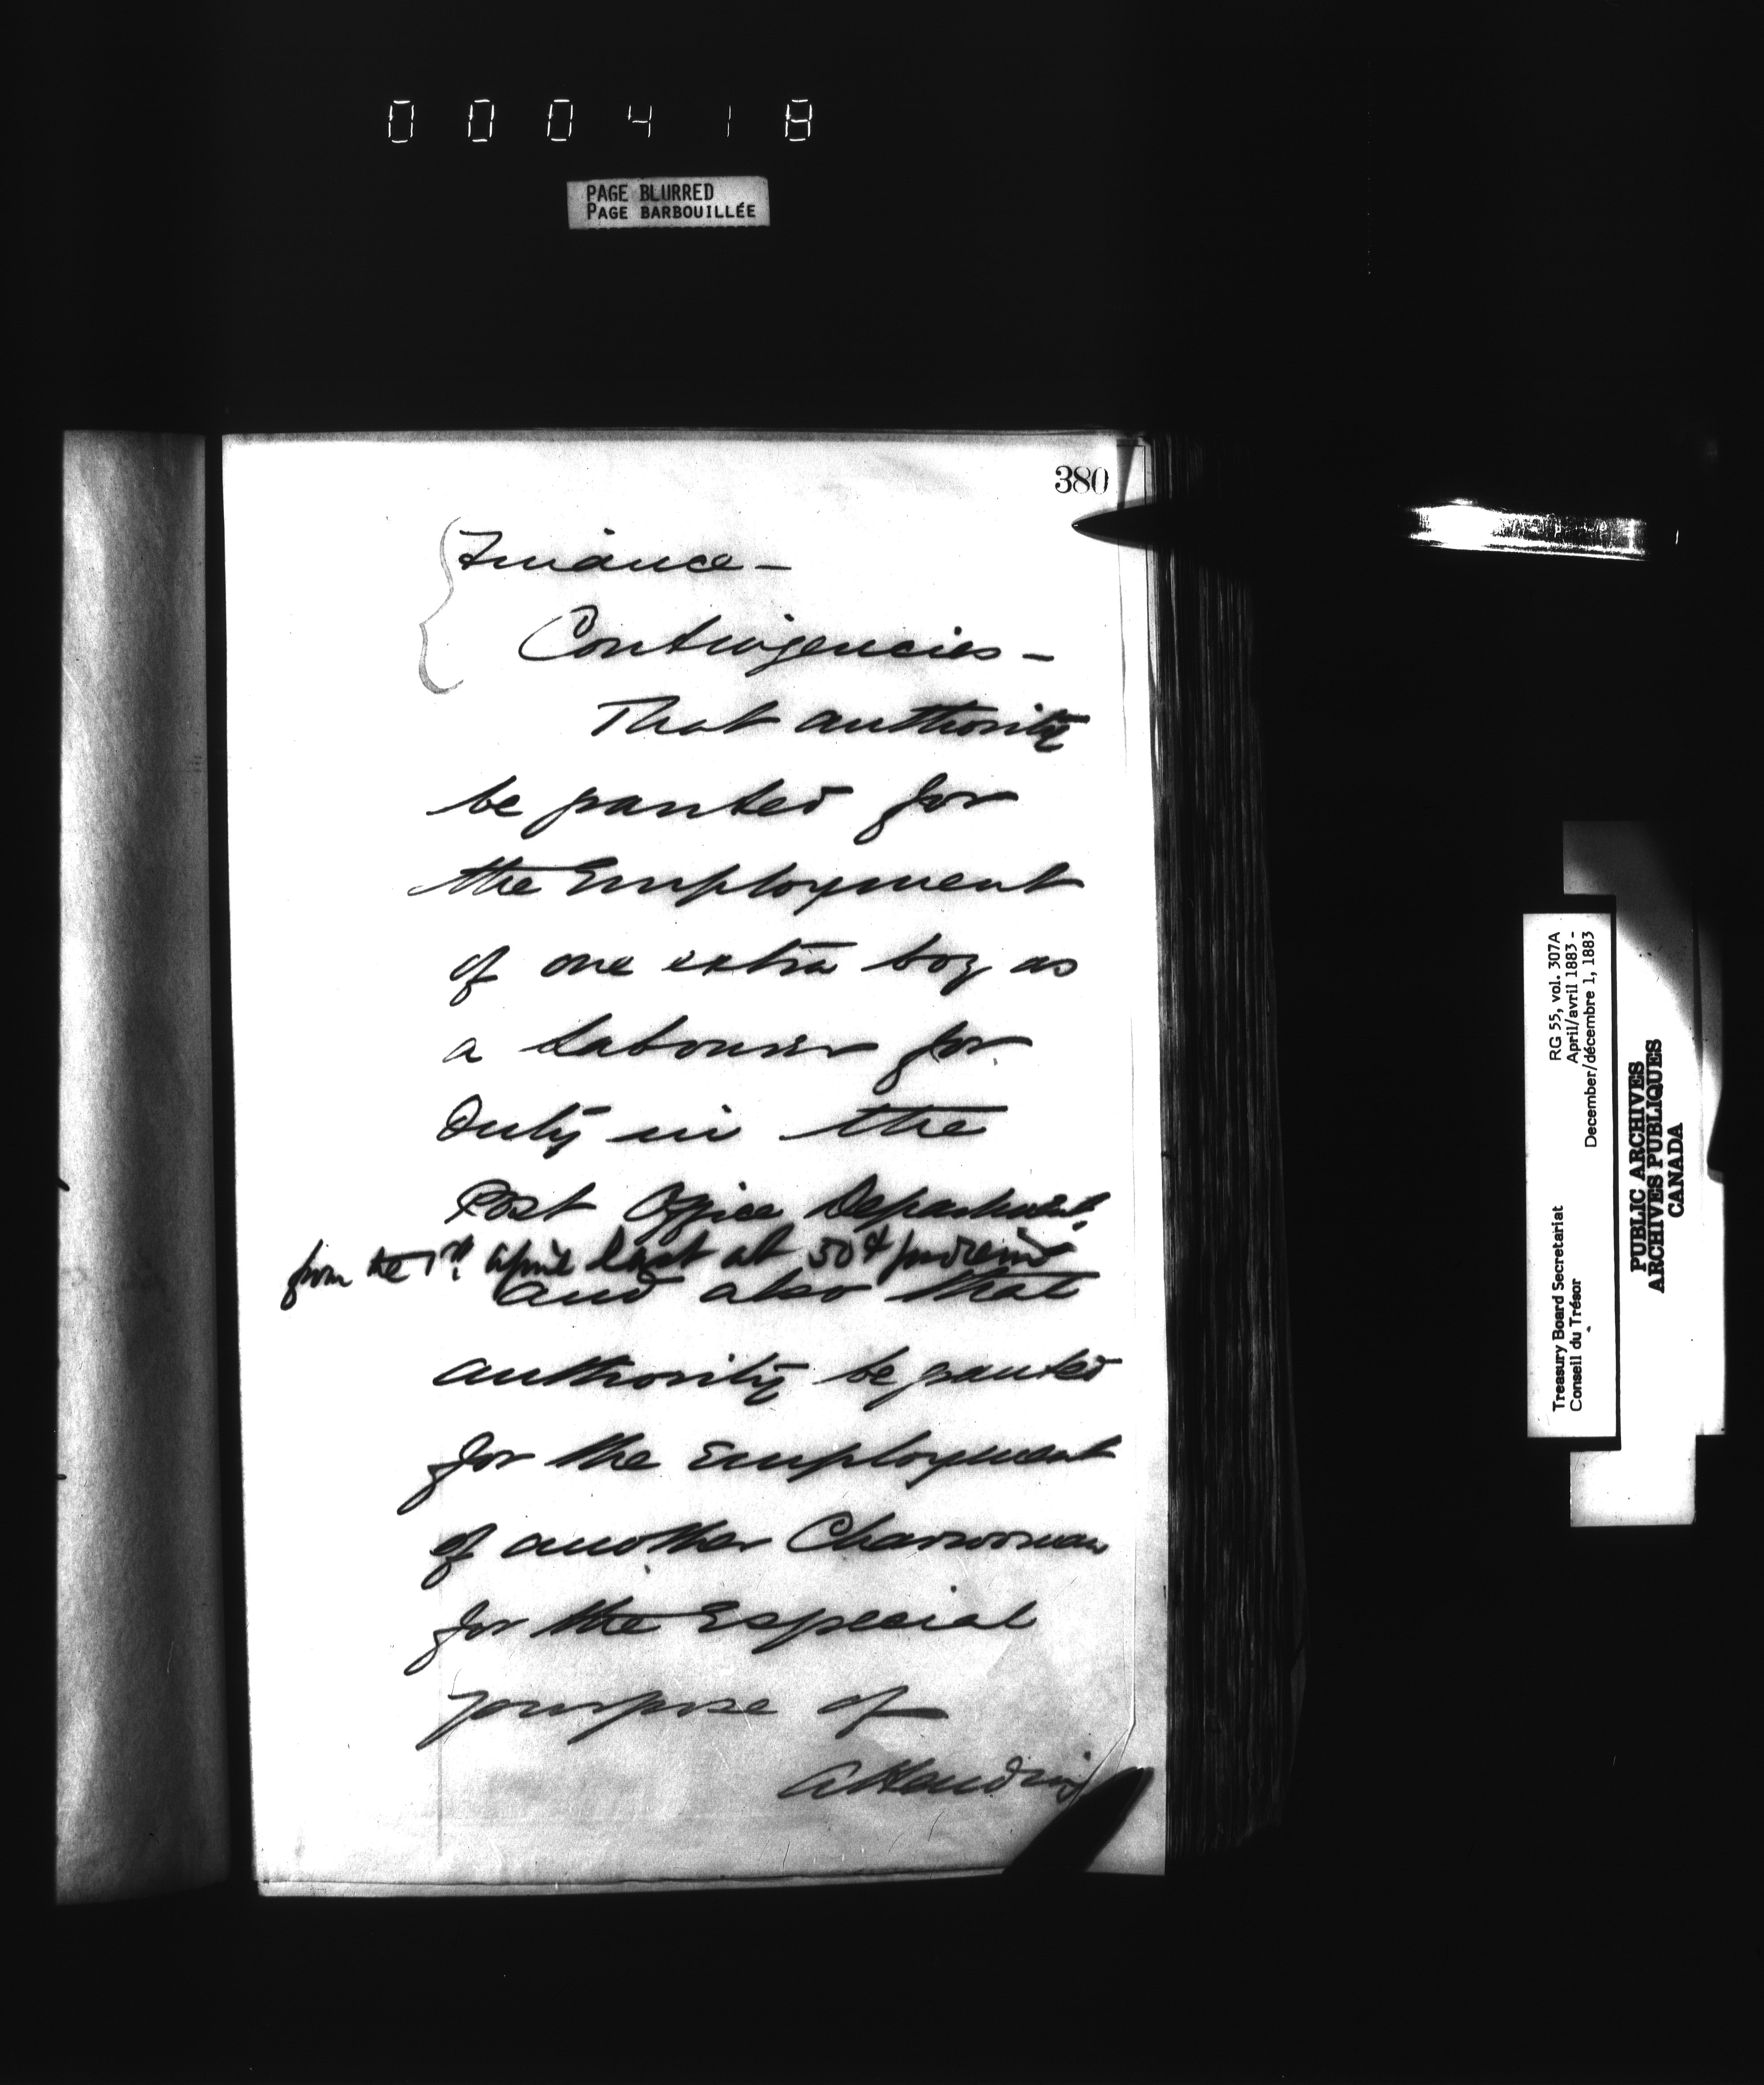 000418
PAGE BLURRED
PAGE BARBOUILLÉE
380
Finance -
Contingencies -
That authority
be granted for
the Employment
of one extra boy as
a labourer for
Duty in the
Post Office Department
from the 1st April last at 50¢ per diem
and also that
authority be granted
for the Employment
of another Charwoman
for the Especial
purpose of
Attending
Treasury Board Secretariat RG 55, vol. 307A
Conseil du Trésor April/avril 1883 -
December/décembre 1, 1883
PUBLIC ARCHIVES
ARCHIVES PUBLIQUES
CANADA